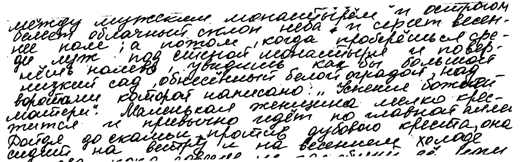 между мужским монастырём и острогом
белеет облачный склон неба и сереет весен-
нее поле; а потом, когда проберёшься сре-
ди луж под стеной монастыря и повер-
нёшь налево, увидишь как бы большой
низкий сад, обнесённый белой оградой, над
воротами которой написано: „Успение божией
матери." Маленькая женщина мелко крес-
тится и привычно идёт по главной аллее.
Дойдя до скамьи против дубового креста, она
сидит на ветру и на весеннем холоде